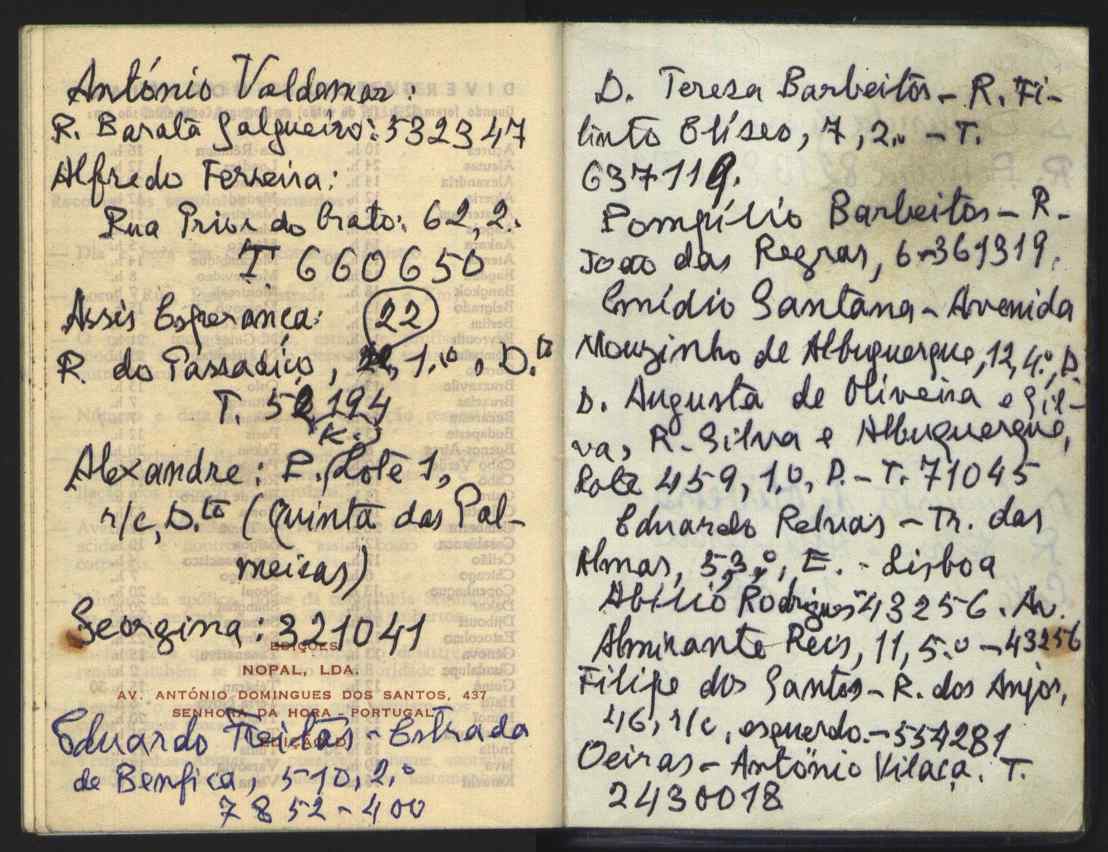 António Valdemar:
R. Barata Salgueiro: 532347
Alfredo Ferreira:
Rua Prior do Crato: 62, 2.
T 660650
Assis Esperança: 22
R. do Passadiço, 1.º, D.to
T. 194
K.
Alexandre: P. Lote 1,
r/c, D.to (Quinta das Pal-
meiras)
Georgina: 321041
EDIÇÕES
NOPAL, LDA.
AV. ANTÓNIO DOMINGUES DOS SANTOS, 437
SENHORA DA HORA - PORTUGAL
Eduardo Freitas - Estrada
de Benfica, 510, 2.º
7852-400
D. Teresa Barbeitos - R. Fi-
linto Elíseo, 7, 2.º - T.
637119.
Pompílio Barbeitos - R.
João das Regras, 6-361319.
Emídio Santana - Avenida
Mouzinho de Albuquerque, 12, 4.º, D.
D. Augusta de Oliveira e Sil-
va, R. Silva e Albuquerque,
Lote 459, 1.º, D. - T. 71045
Eduardo Relvas - Tr. das
Almas, 5, 3.º, E. - Lisboa
Abílio Rodrigues 43256. Av.
Almirante Reis, 11, 5.º - 43256
Filipe dos Santos - R. dos Anjos,
46, r/c, esquerdo. - 554281
Oeiras - António Vilaça. T.
2430018